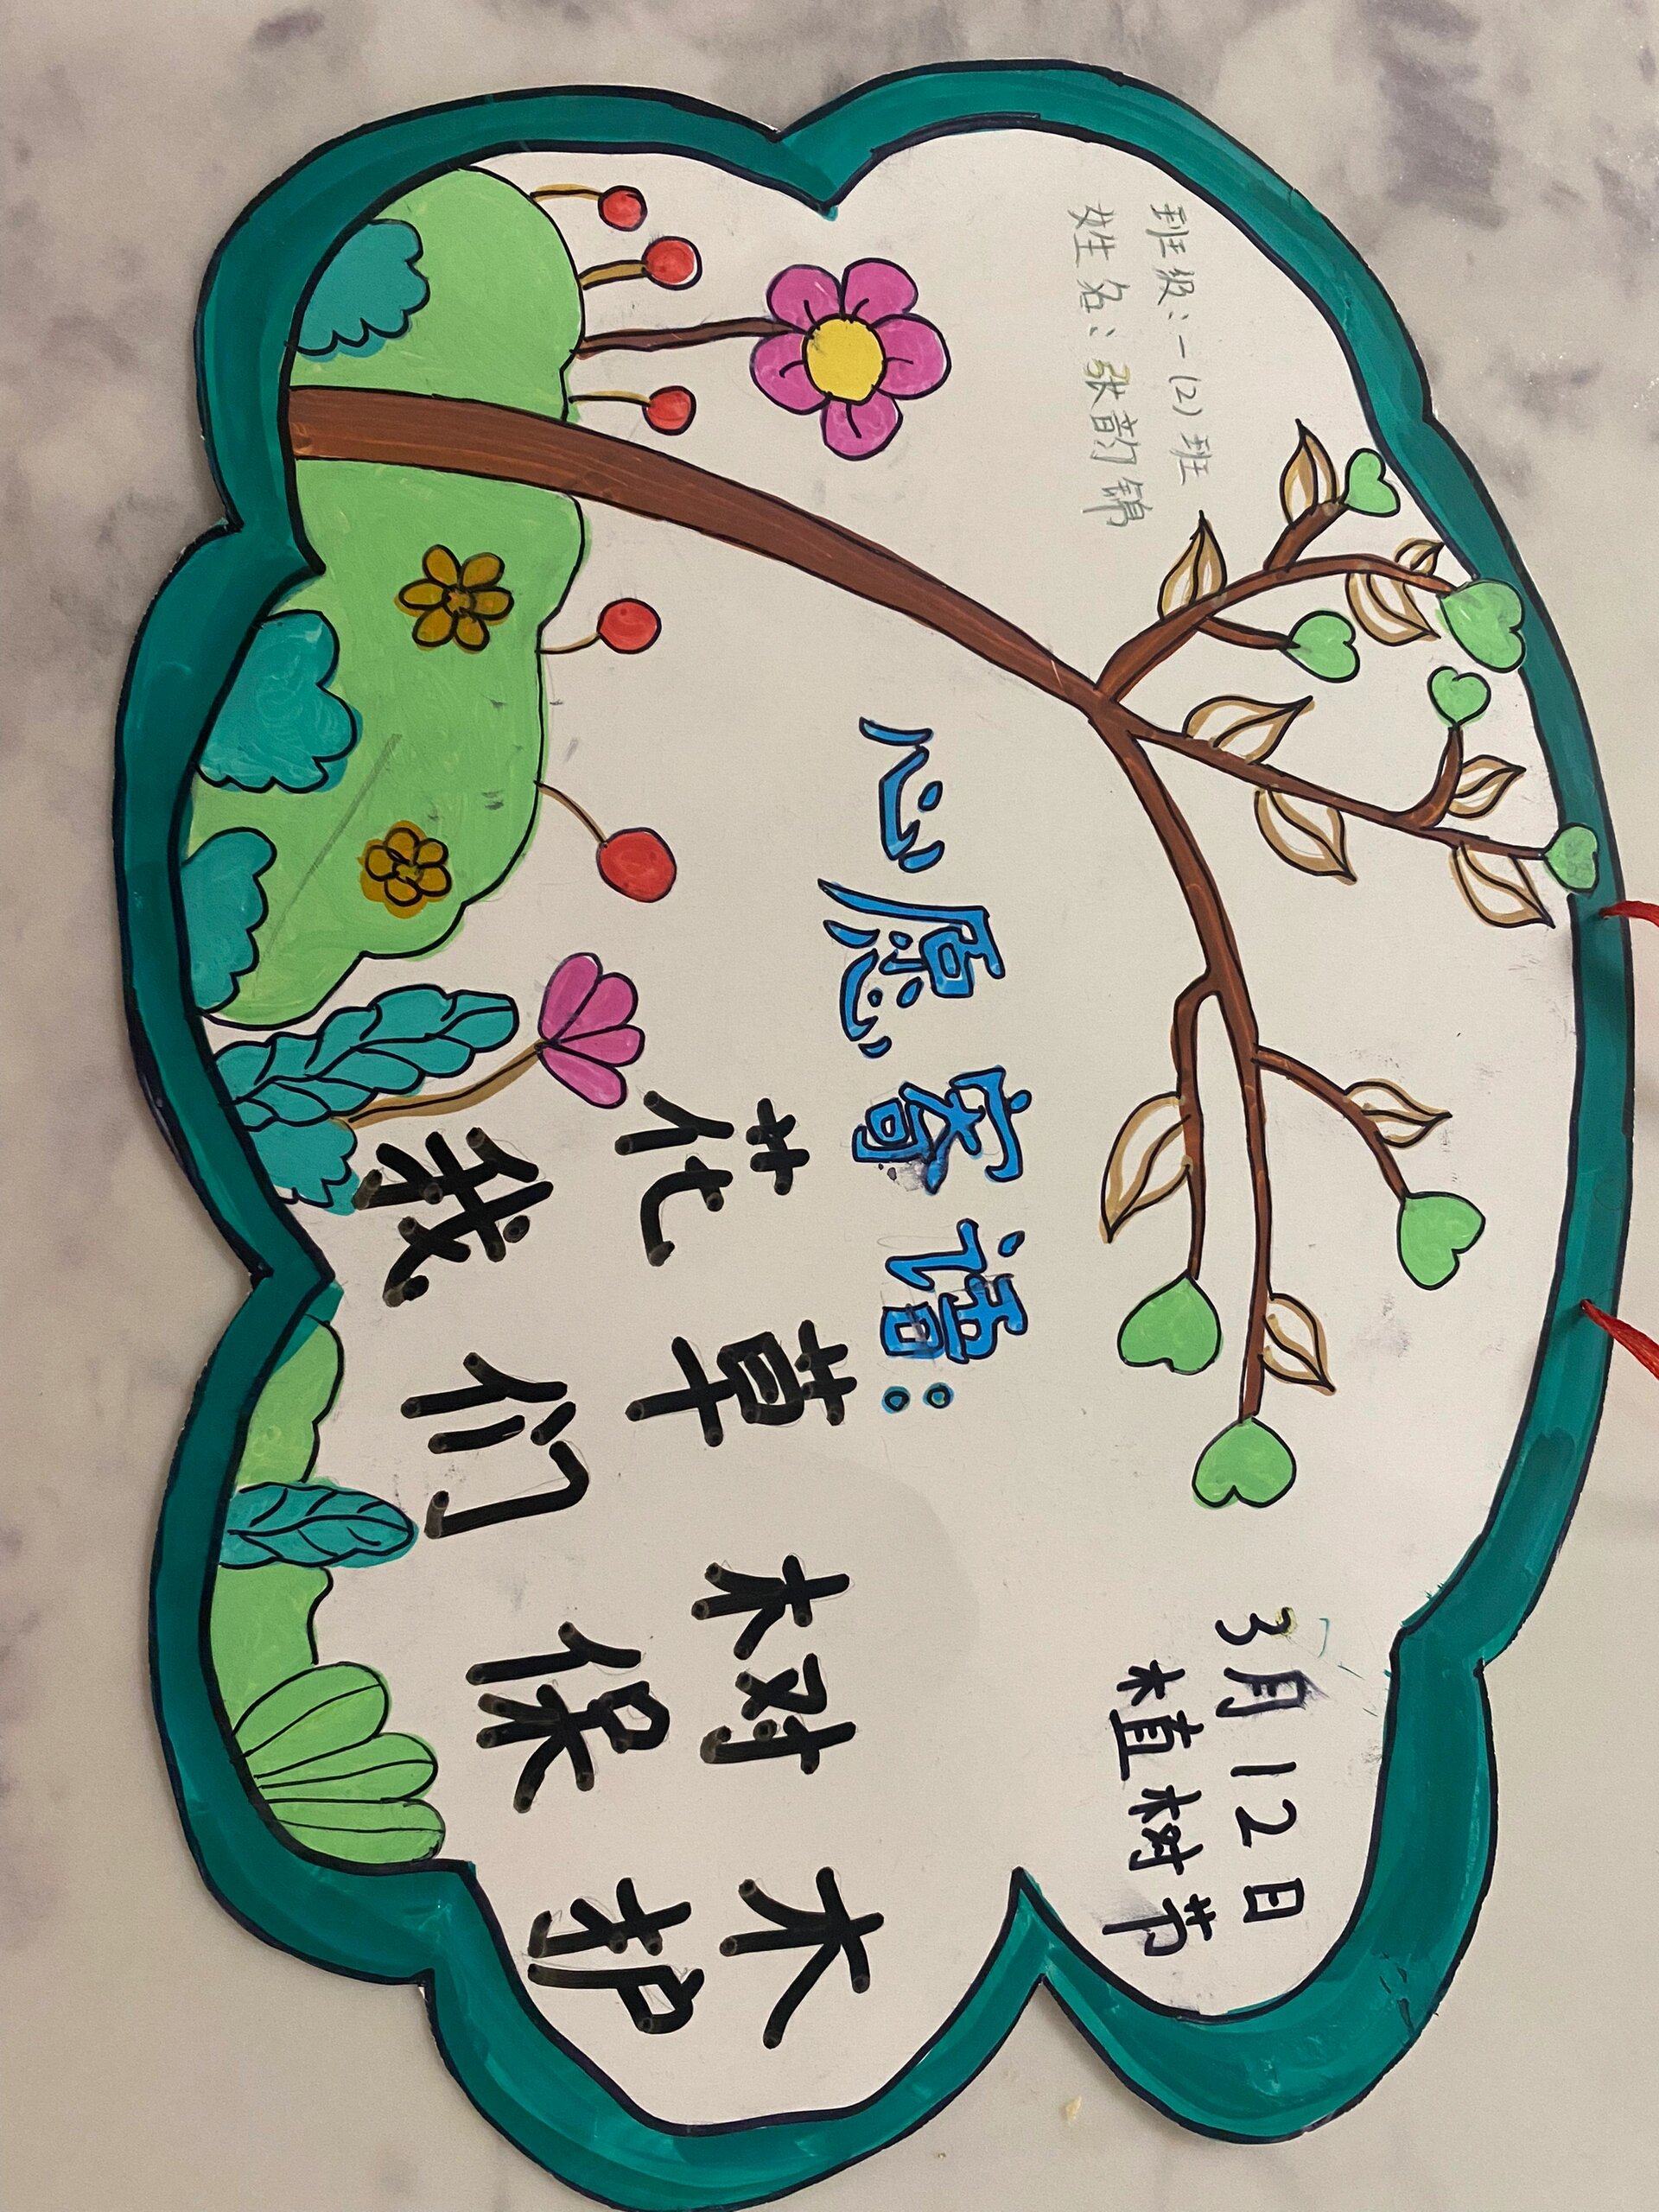 班级：一(2)班
姓名：张韵锦
3月12日
植树节
心愿寄语：
花草树木
我们保护